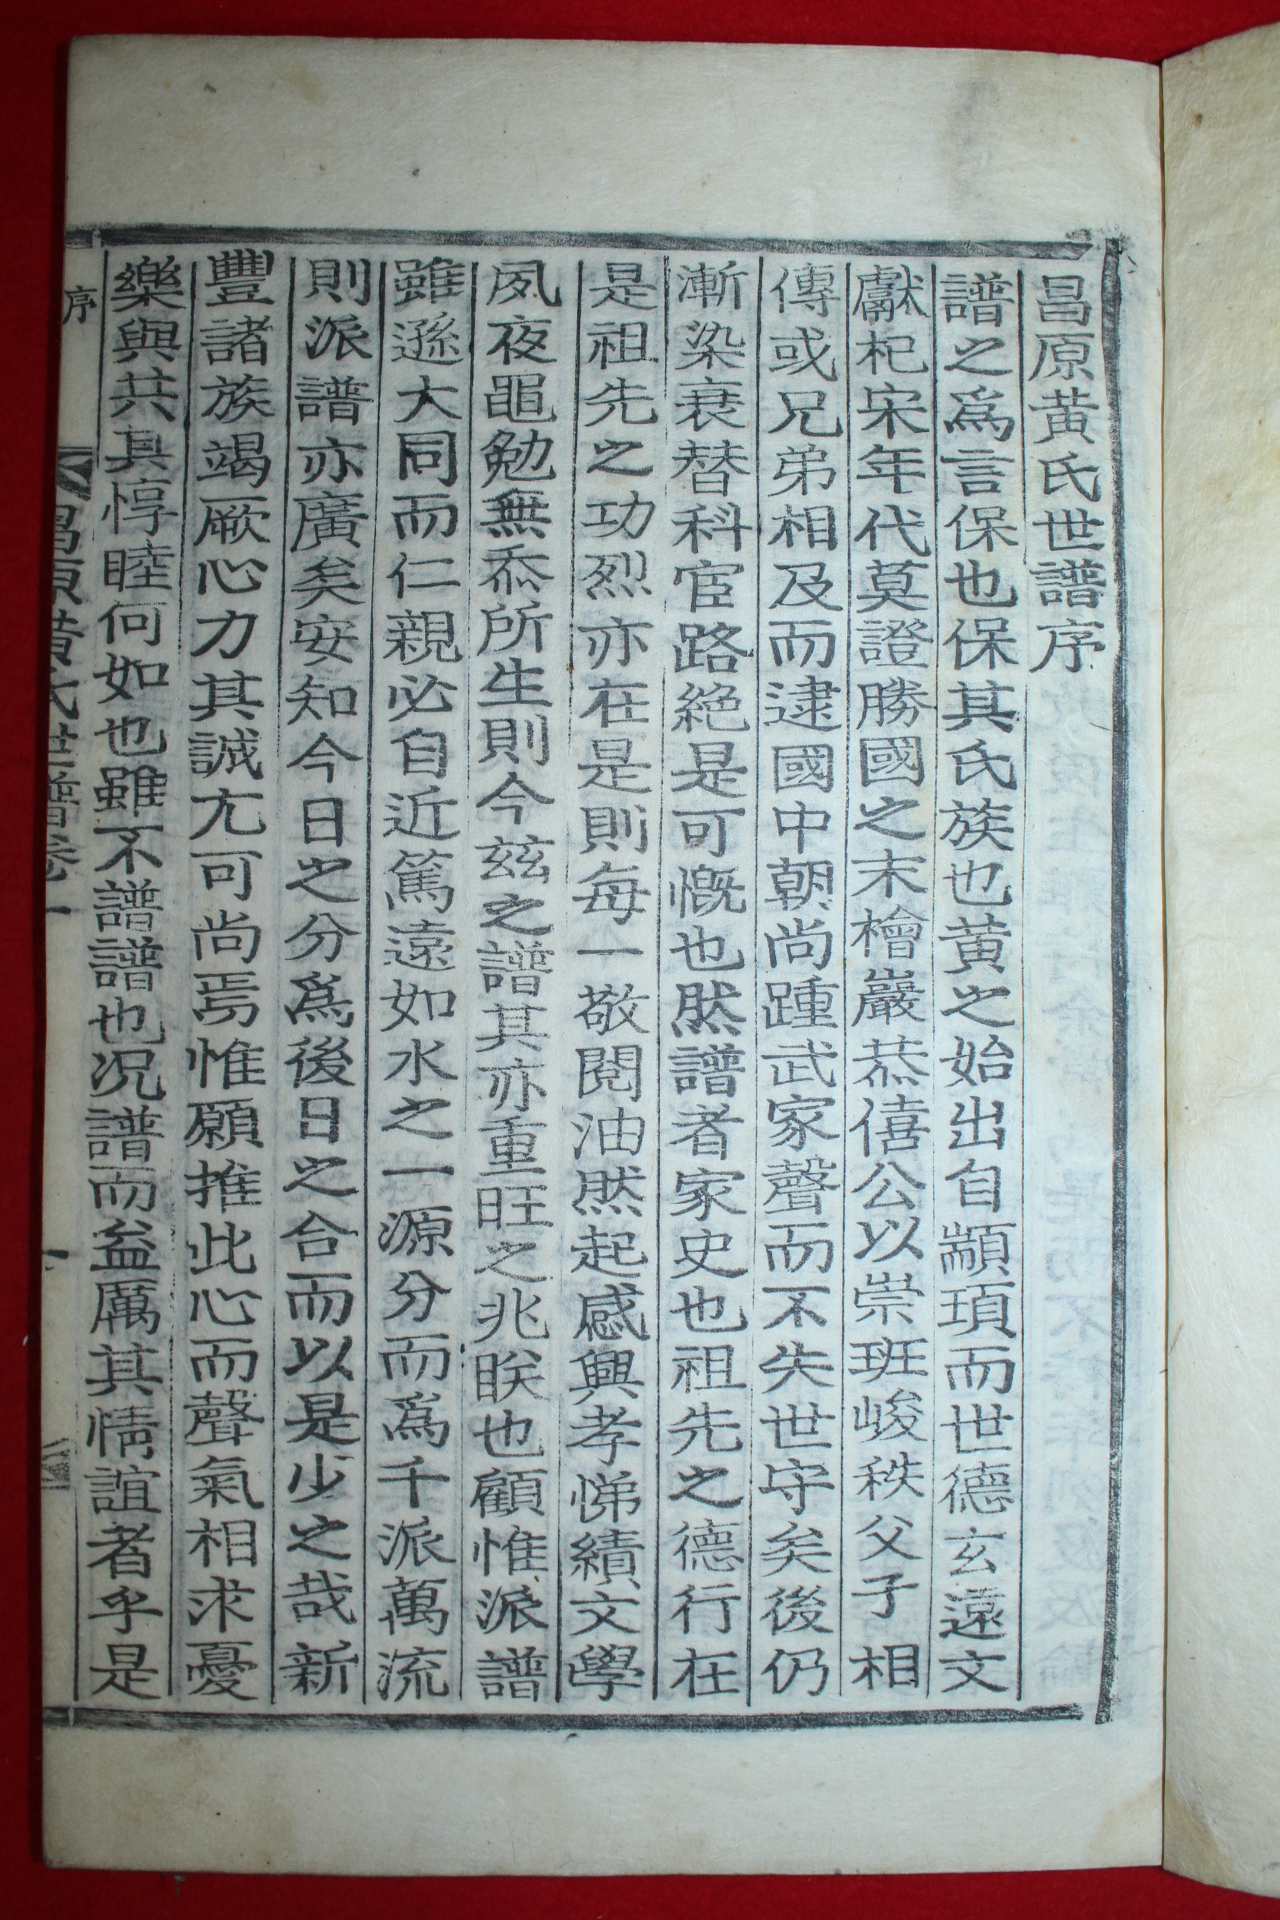 昌原黃氏世譜序
譜之爲言保也保其氏族也黃之始出自顓頊而世德玄遠文
獻杞宋年代莫證勝國之末檜巖恭僖公以崇班峻秩父子相
傳或兄弟相及而逮國中朝尚踵武家聲而不失世守矣後仍
漸染衰替科宦路絶是可慨也然譜者家史也祖先之德行在
是祖先之功烈亦在是則每一敬閱油然起感興孝悌績文學
夙夜黽勉無忝所生則今玆之譜其亦重旺之兆眹也顧惟派譜
雖遜大同而仁親必自近篤遠如水之一源分而爲千派萬流
則派譜亦廣矣安知今日之分爲後日之合而以是少之哉新
豐諸族竭厥心力其誠尤可尚焉惟願推此心而聲氣相求憂
樂與共其惇睦何如也雖不譜譜也况譜而益厲其情誼者乎是
序
昌原黃氏世譜卷一
一